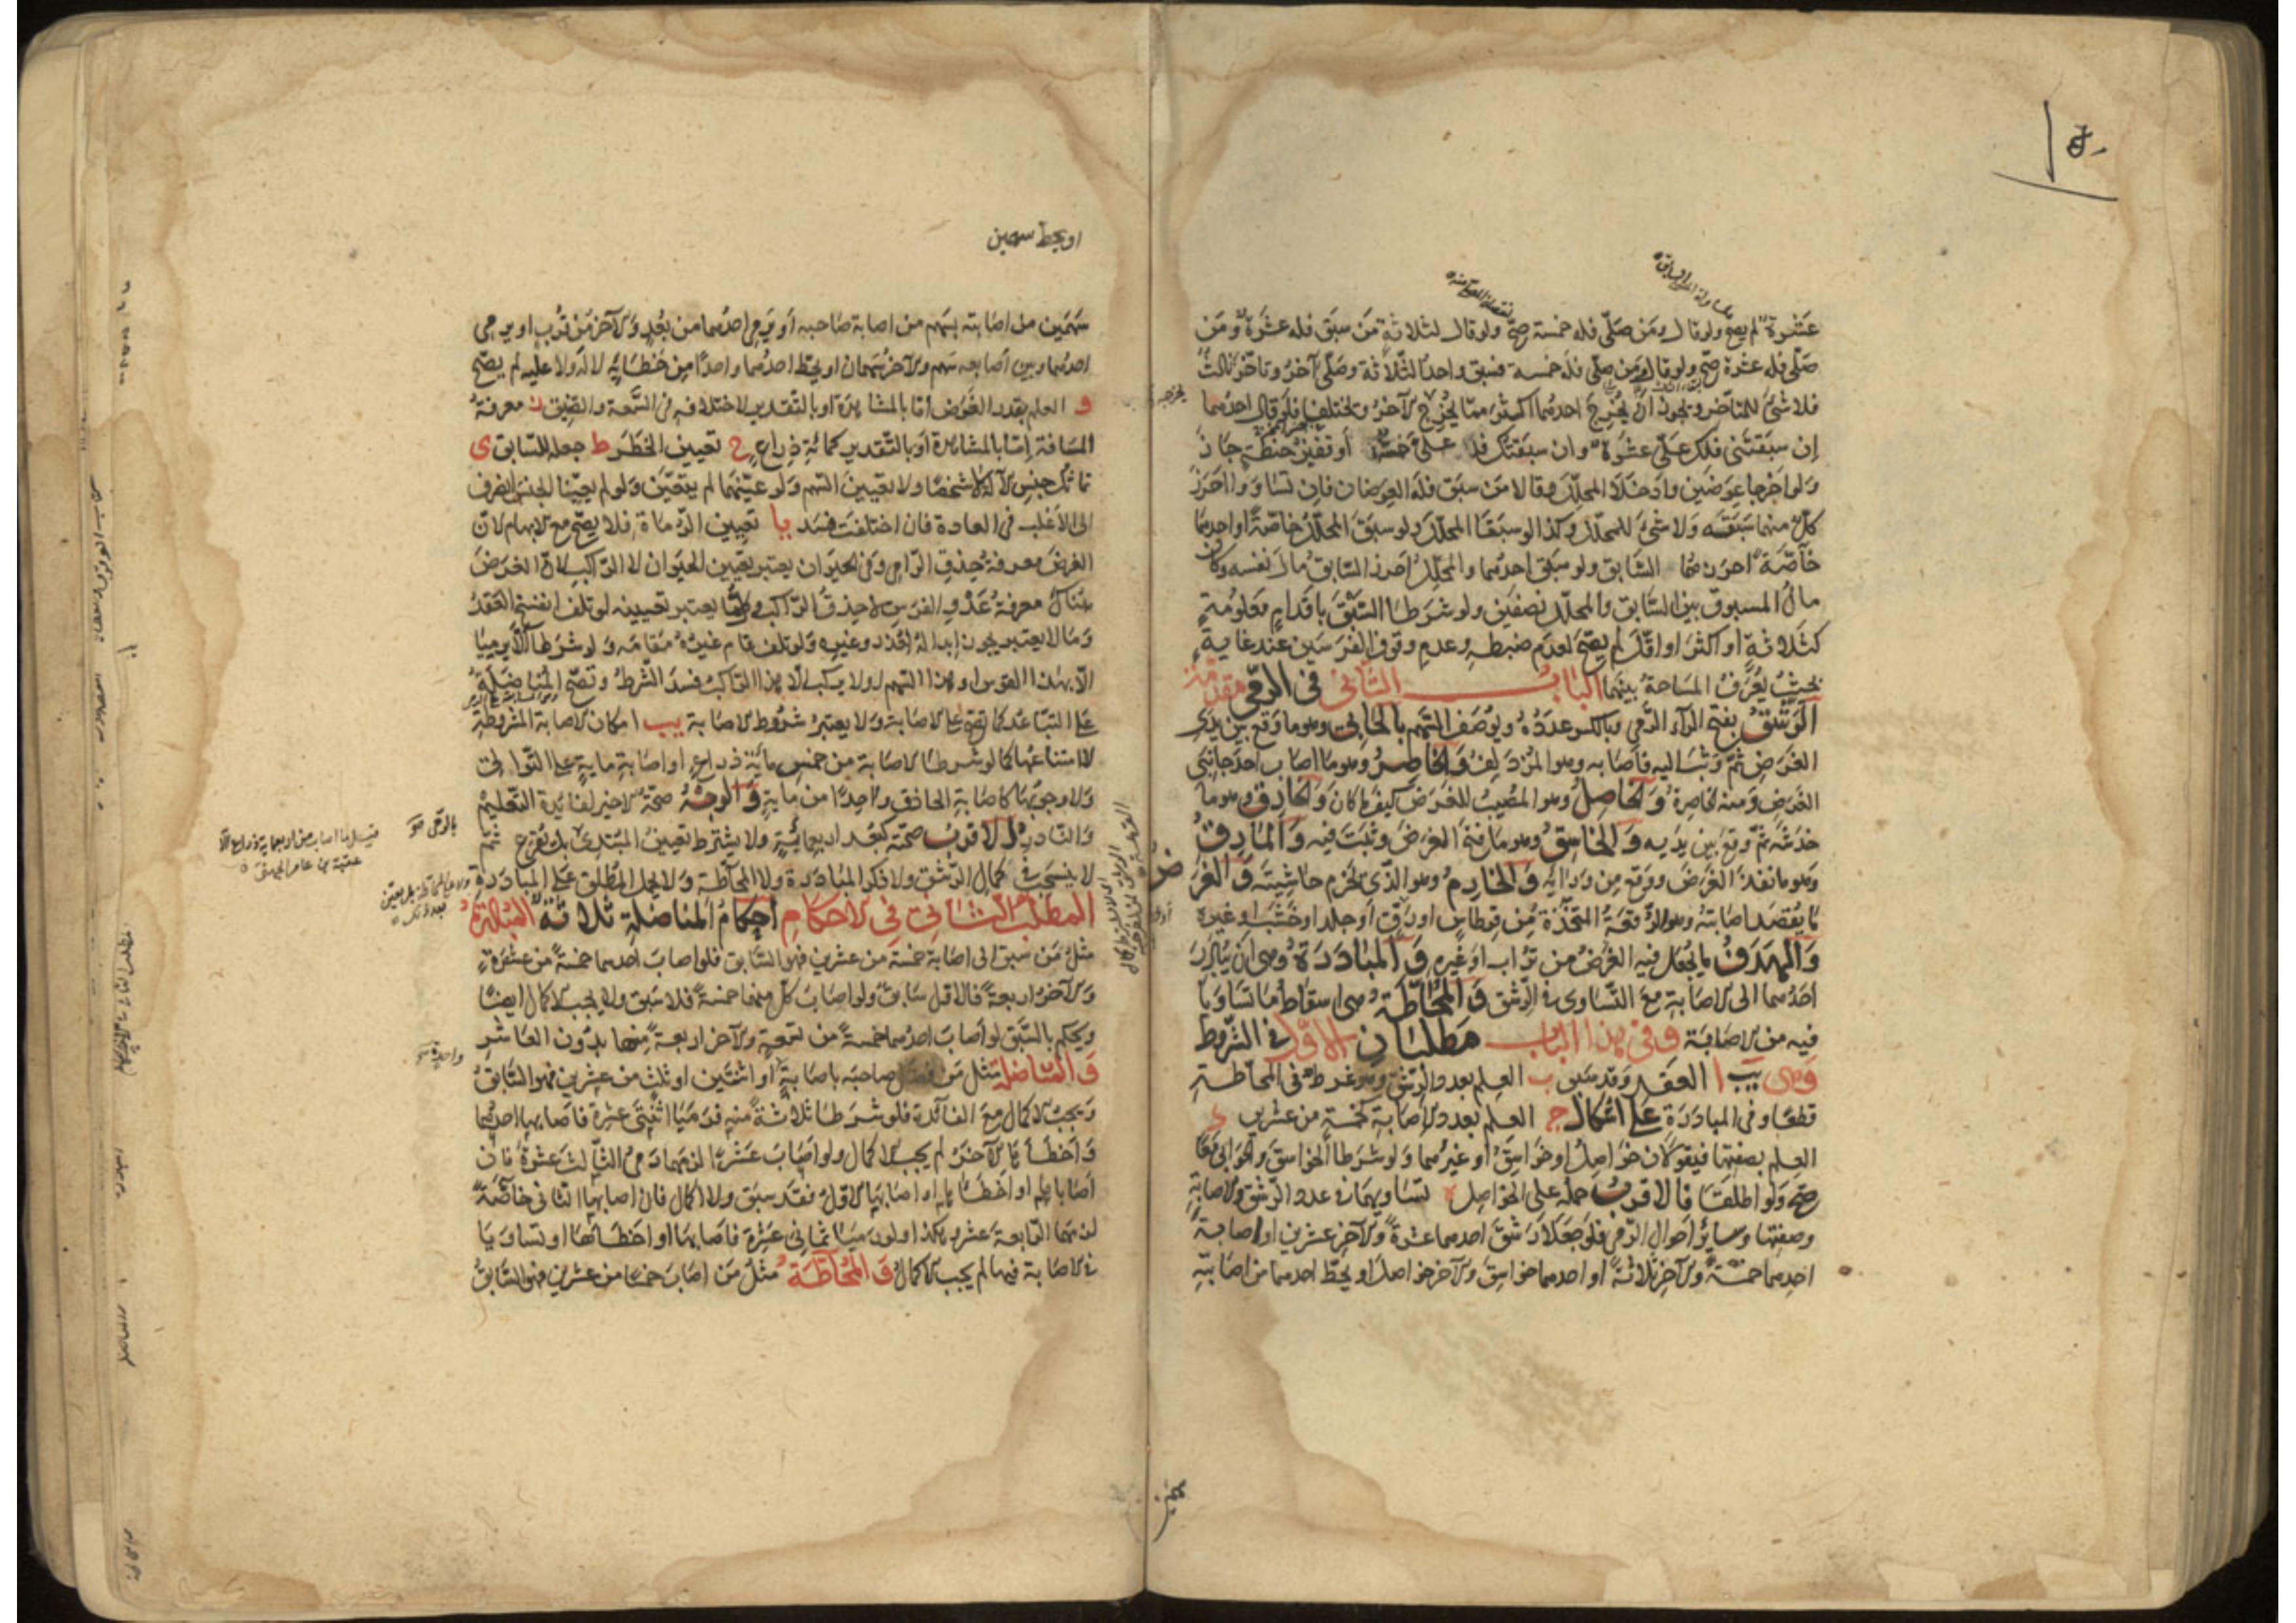 عشرة لم يصح ولو قال ومن صلّى فله خمسة صحّ ولو قال لثلاثة من سبق فله عشرة ومن
صلّى فله عشرة صحّ ولو قال ومن صلّى فله خمسة فسبق واحد الثلاثة وصلّى آخر وتأخّر ثالث
فلا شئ للمتأخر ويجوز ان يخرج احدهما اكثر ممّا يخرج الآخر ويختلف فلو قال احدهما
إن سبقتنى فلك علىّ عشرة وان سبقتك فلا علىّ خمسة او قفيز حنطة جاز
ولو اخرجا عوضين وادخلا المحلّل وقالا من سبق فله العوضان فإن تساووا احرز
كلّ منهما سبقه ولا شئ للمحلّل وكذا لو سبقا المحلّل ولو سبق المحلّل خاصّة او احدهما
خاصّة احرزهما السابق ولو سبق احدهما والمحلّل احرز السابق مال نفسه وكان
مال المسبوق بين السابق والمحلّل نصفين ولو شرطا السبق باقدام معلومة
كثلاثة او اكثر او اقلّ لم يصحّ لعدم ضبطه وعدم وقوف الفرسين عند غاية
بحيث يُعرف المساحة بينهما الباب الثانى فى الرمى مقدّمة
الرشق بفتح الراء الرمى وبالكسر عدده ويوصف السهم بالحابى وهو ما وقع بين يدى
الغرض ثمّ وثب اليه فاصابه وهو المزدلف والخاصر وهو ما اصاب احد جانبى
الغرض ومنه الخاصرة والخاصل وهو المصيب للغرض كيف ما كان والخازق وهو ما
خدشه ثمّ وقع بين يديه والخاسق وهو ما فتح الغرض وثبت فيه والمارق
وهو ما نفذ الغرض ووقع من ورائه والخارم وهو الذى يخرم حاشيته والغرض
ما يُقصد اصابته وهو الرقعة المتخذة من قرطاس او رق او جلد او خشب او غيره
والهدف ما يُجعل فيه الغرض من تراب او غيره والمبادرة وهى ان يبادر
احدهما الى الاصابة مع التساوى فى الرشق والمحاطّة هى اسقاط ما تساويا
فيه من الاصابة وفى هذا الباب مطلبان الاوّل فى الشروط
وهى يب ا العقد وقد سبق ب العلم بعدد الرشق وهو شرط فى المحاطّة
قطعا وفى المبادرة على اشكال ج العلم بعدد الاصابة كخمسة من عشرين د
العلم بصفتها فيقولان خواصل او خواسق او غيرهما ولو شرطا الخواسق والحوابى معا
صحّ ولو اطلقا فالاقرب حمله على الخواصل ه تساويهما فى عدد الرشق والاصابة
وصفتها وسائر احوال الرمى فلو جعلا رشق احدهما عشرة والآخر عشرين او اصابة
احدهما خمسة والآخر ثلاثة او احدهما خواسق والآخر خواصل او يحطّ احدهما من اصابته
او يحط سهمين
سهمين من اصابته بسهم من اصابة صاحبه او يرمى احدهما من بُعد والآخر من قرب او يرمى
احدهما وبين اصابعه سهم والآخر سهمان او يحطّ احدهما واحدا من خطائه لا له ولا عليه لم يصحّ
و العلم بقدر الغرض امّا بالمشاهدة او بالتقدير لاختلافه فى السّعة والضيق ز معرفة
المسافة إمّا بالمشاهدة او بالتقدير كمائة ذراع ح تعيين الخطر ط جعله للسابق ى
تماثل جنس الآلة لا شخصها ولا تعيين السهم ولو عيّنهما لم يتعيّن ولو لم يعيّنا الجنس انصرف
الى الاغلب فى العادة فان اختلفت فسد يا تعيين الرماة فلا يصحّ مع الابهام لانّ
الغرض معرفة حذق الرامى وفى الحيوان يعتبر تعيين الحيوان لا الراكب لانّ الغرض
هناك معرفة عدو الفرس لا حذق الراكب وكلما يعتبر تعيينه لو تلف انفسخ العقد
وما لا يعتبر يجوز إبداله لعذر وغيره ولو تلف قام غيره مقامه ولو شرطا الاّ يرميا
الاّ بهذا القوس او هذا السهم او لا يركب الاّ هذا الراكب فسد الشرط وتصحّ المناضلة
على التباعد كما تصح على الاصابة ولا يعتبر شروط الاصابة يب امكان الاصابة المشروطة
لا امتناعها كما لو شرطا الاصابة من خمس مائة ذراع او اصابة مائة على التوالى
ولا وجوبها كاصابة الحاذق واحدا من مائة والوجه صحّة الاخير لفائدة التعليم
والنادر الاقرب صحّته كبُعد اربعمائة ولا يشترط تعيين المبتدئ بل يُقرع ثمّ
لا ينسحب فى كمال الرشق ولا ذكر المبادرة ولا المحاطّة ولا يحمل المطلق على المبادرة
المطلب الثانى فى الاحكام احكام المناضلة ثلاثة المبادرة
مثل من سبق الى اصابة خمسة من عشرين فهو السابق فلو اصاب احدهما خمسة من عشرة
والآخر اربعة فالاوّل سابق ولو اصاب كلّ منهما خمسة فلا سبق ولا يجب الاكمال ايضا
ويحكم بالسبق لو اصاب احدهما خمسة من تسعة والآخر اربعة منها بدون العاشر
والمناضلة مثل من فضل صاحبه باصابة او اثنتين او ثلث من عشرين فهو السابق
ويجب الاكمال مع الفائدة فلو شرطا ثلاثة منه فرميا اثنتى عشرة فاصابها احدهما
واخطأها الآخر لم يجب الاكمال ولو اصاب عشرا لزمهما رمى الثالث عشرة فان
اصاباها او اخطئاها او اصابها الاوّل فقد سبق ولا اكمال فان اصابها الثانى خاصّة
لزمهما الرابعة عشر وهكذا ولو رميا ثمانى عشرة فاصابها او اخطأها او تساويا
فى الاصابة فيها لم يجب الاكمال والمحاطّة مثل من اصاب خمسا من عشرين فهو السابق